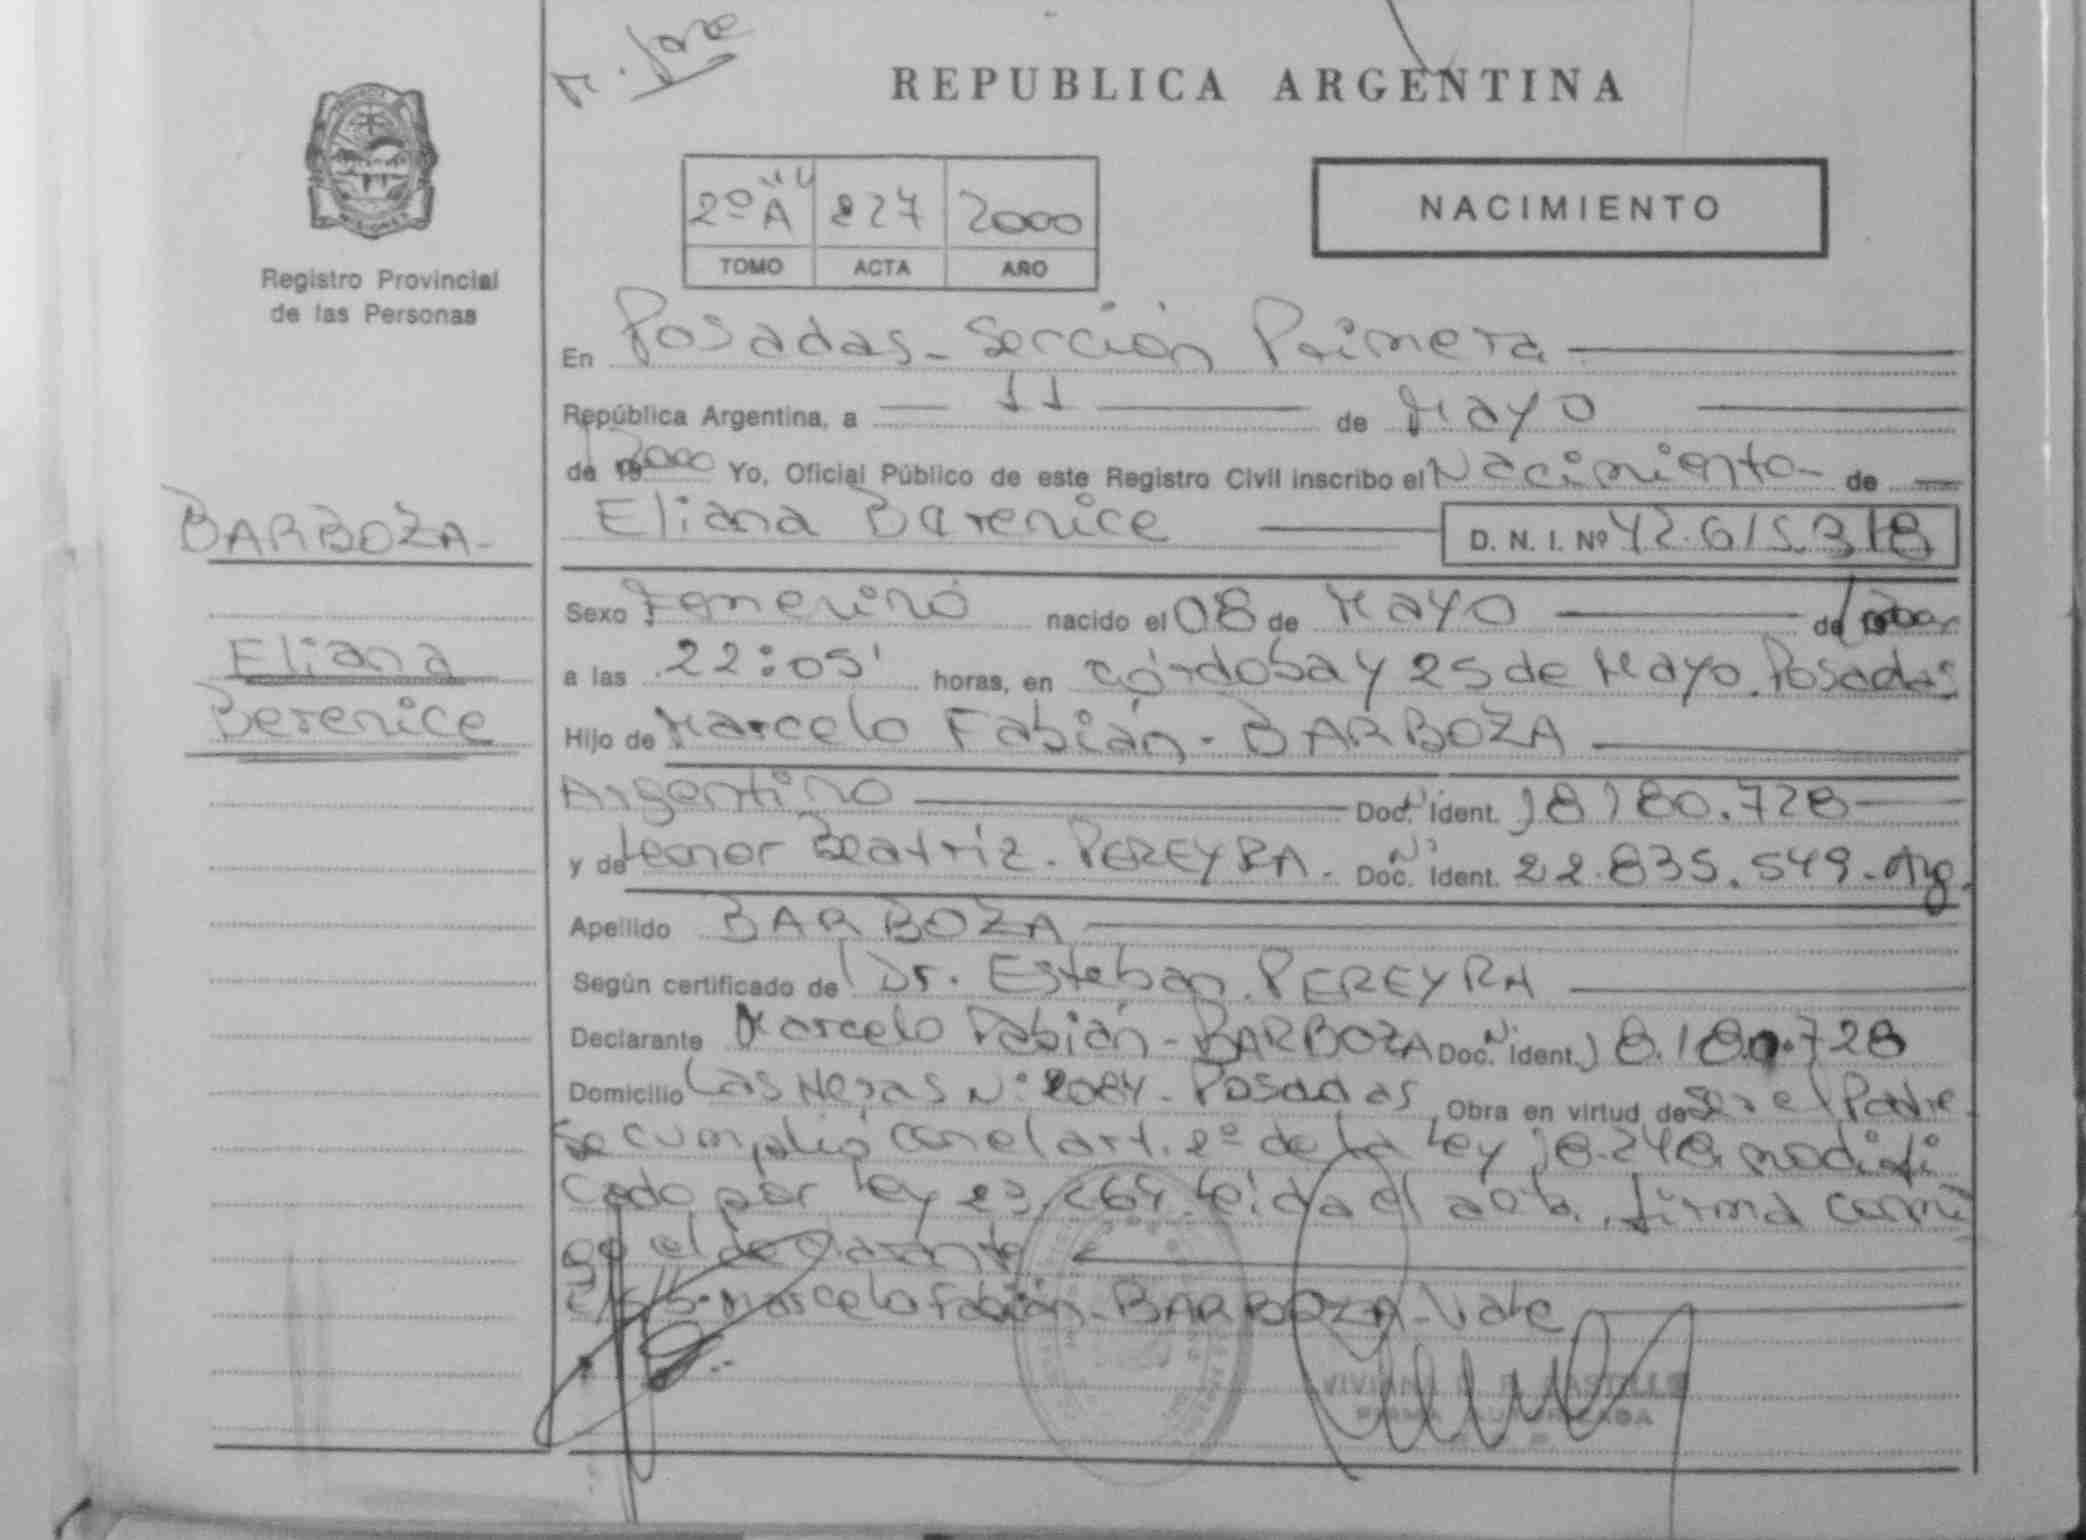 M. Jose
REPUBLICA ARGENTINA
2º "A" 227 2000
TOMO ACTA AÑO
NACIMIENTO
Registro Provincial
de las Personas
En Posadas - Sección Primera
República Argentina, a 11 de Mayo
de 2000 Yo, Oficial Público de este Registro Civil inscribo el Nacimiento - de
BARBOZA -
Eliana Berenice D. N. I. Nº 42.615.318
Sexo Femenino nacido el 08 de Mayo de
Eliana
Berenice
a las 22:05' horas, en Córdoba y 25 de Mayo. Posadas
Hijo de Marcelo Fabián - BARBOZA
Argentino Doc. Nº Ident. 18180.728
y de Leonor Beatriz. PEREYRA. Doc. Nº Ident. 22.835.549 - Arg.
Apellido BARBOZA
Según certificado de Dr. Esteban. PEREYRA
Declarante Marcelo Fabián - BARBOZA Doc. Nº Ident. 18.180.728
Domicilio Las Heras Nº 2084 - Posadas Obra en virtud de ser el Padre
Se cumplió con el art. 2º de la Ley 18.248, modifi
cado por Ley 23.264. Leída el acta, firma conmi
go el declarante
E/S/B. Marcelo Fabián - BARBOZA - Vale
VIVIANA
FIRMA AUTORIZADA